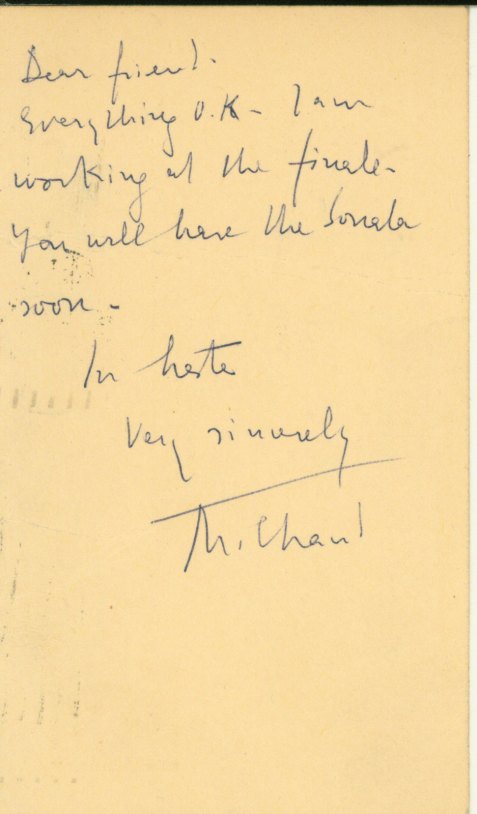 Dear friend.
Everything O.K - I am
working at the finale.
You will have the Sonata
soon -
In haste
Very sincerely
Milhaud